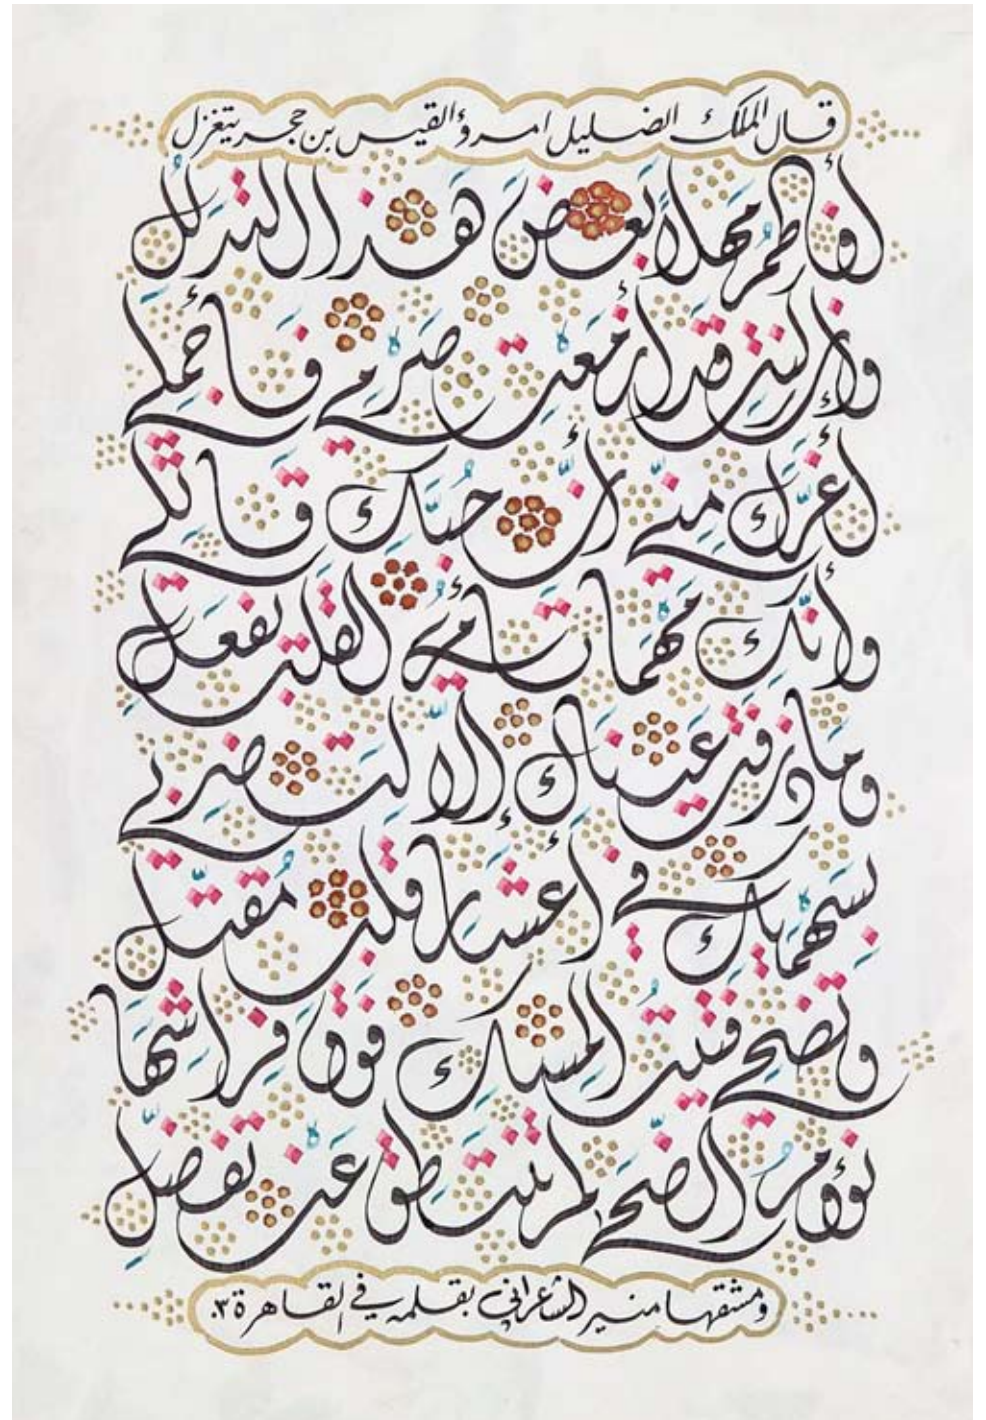 قال الملك الضليل امرؤ القيس بن حجر يتغزل
أفاطمُ مهلاً بعضَ هذا التدللُ
وإن كنتِ قد أزمعتِ صَرْمي فأجملي
أغرَّكِ منّي أنّ حُبَّكِ قاتلي
وأنّكِ مهْما تأمُري القلبَ يفعلِ
وما ذرفت عيناكِ إلّا لتضربي
بسهْميكِ في أعشارِ قلبٍ مُقتّلِ
وتضحي فتيتُ المسكِ فوقَ فراشها
نؤومُ الضّحى لم تنتطق عنْ تفضّلِ
ومشقها منير الشعراني بقلمه في القاهرة ٠٣